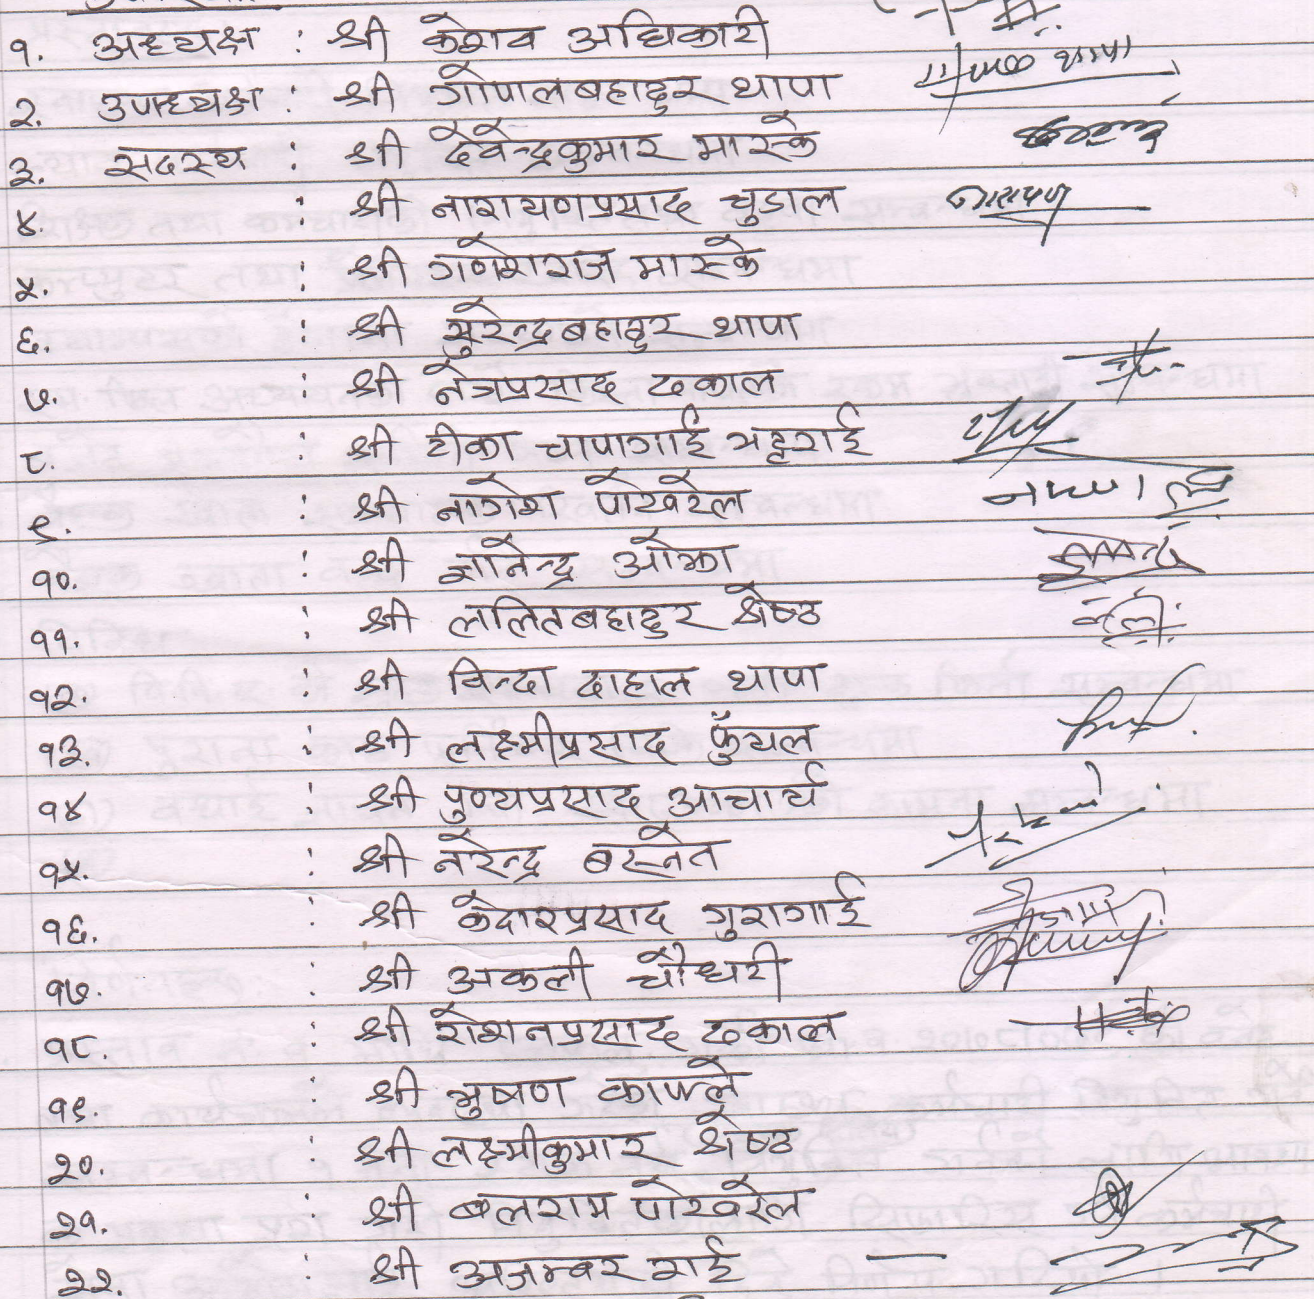 १. अध्यक्ष : श्री केशव अधिकारी
२. उपाध्यक्ष : श्री गोपालबहादुर थापा
३. सदस्य : श्री देवेन्द्रकुमार मास्के
४. : श्री नारायणप्रसाद चुडाल नारायण
५. : श्री गणेशराज मास्के
६. : श्री सुरेन्द्रबहादुर थापा
७. : श्री नेत्रप्रसाद ढकाल
८. : श्री टीका चापागाई भट्टराई
९. : श्री नागेश पोखरेल
१०. : श्री ज्ञानेन्द्र ओझा
११. : श्री ललितबहादुर श्रेष्ठ
१२. : श्री बिन्दा दाहाल थापा
१३. : श्री लक्ष्मीप्रसाद फुँयल
१४. : श्री पुण्यप्रसाद आचार्य
१५. : श्री नरेन्द्र बस्नेत
१६. : श्री केदारप्रसाद गुरागाई
१७. : श्री अकली चौधरी
१८. : श्री रोशनप्रसाद ढकाल
१९. : श्री भुषण काफ्ले
२०. : श्री लक्ष्मीकुमार श्रेष्ठ
२१. : श्री बलराम पोखरेल
२२. : श्री अजम्बर राई